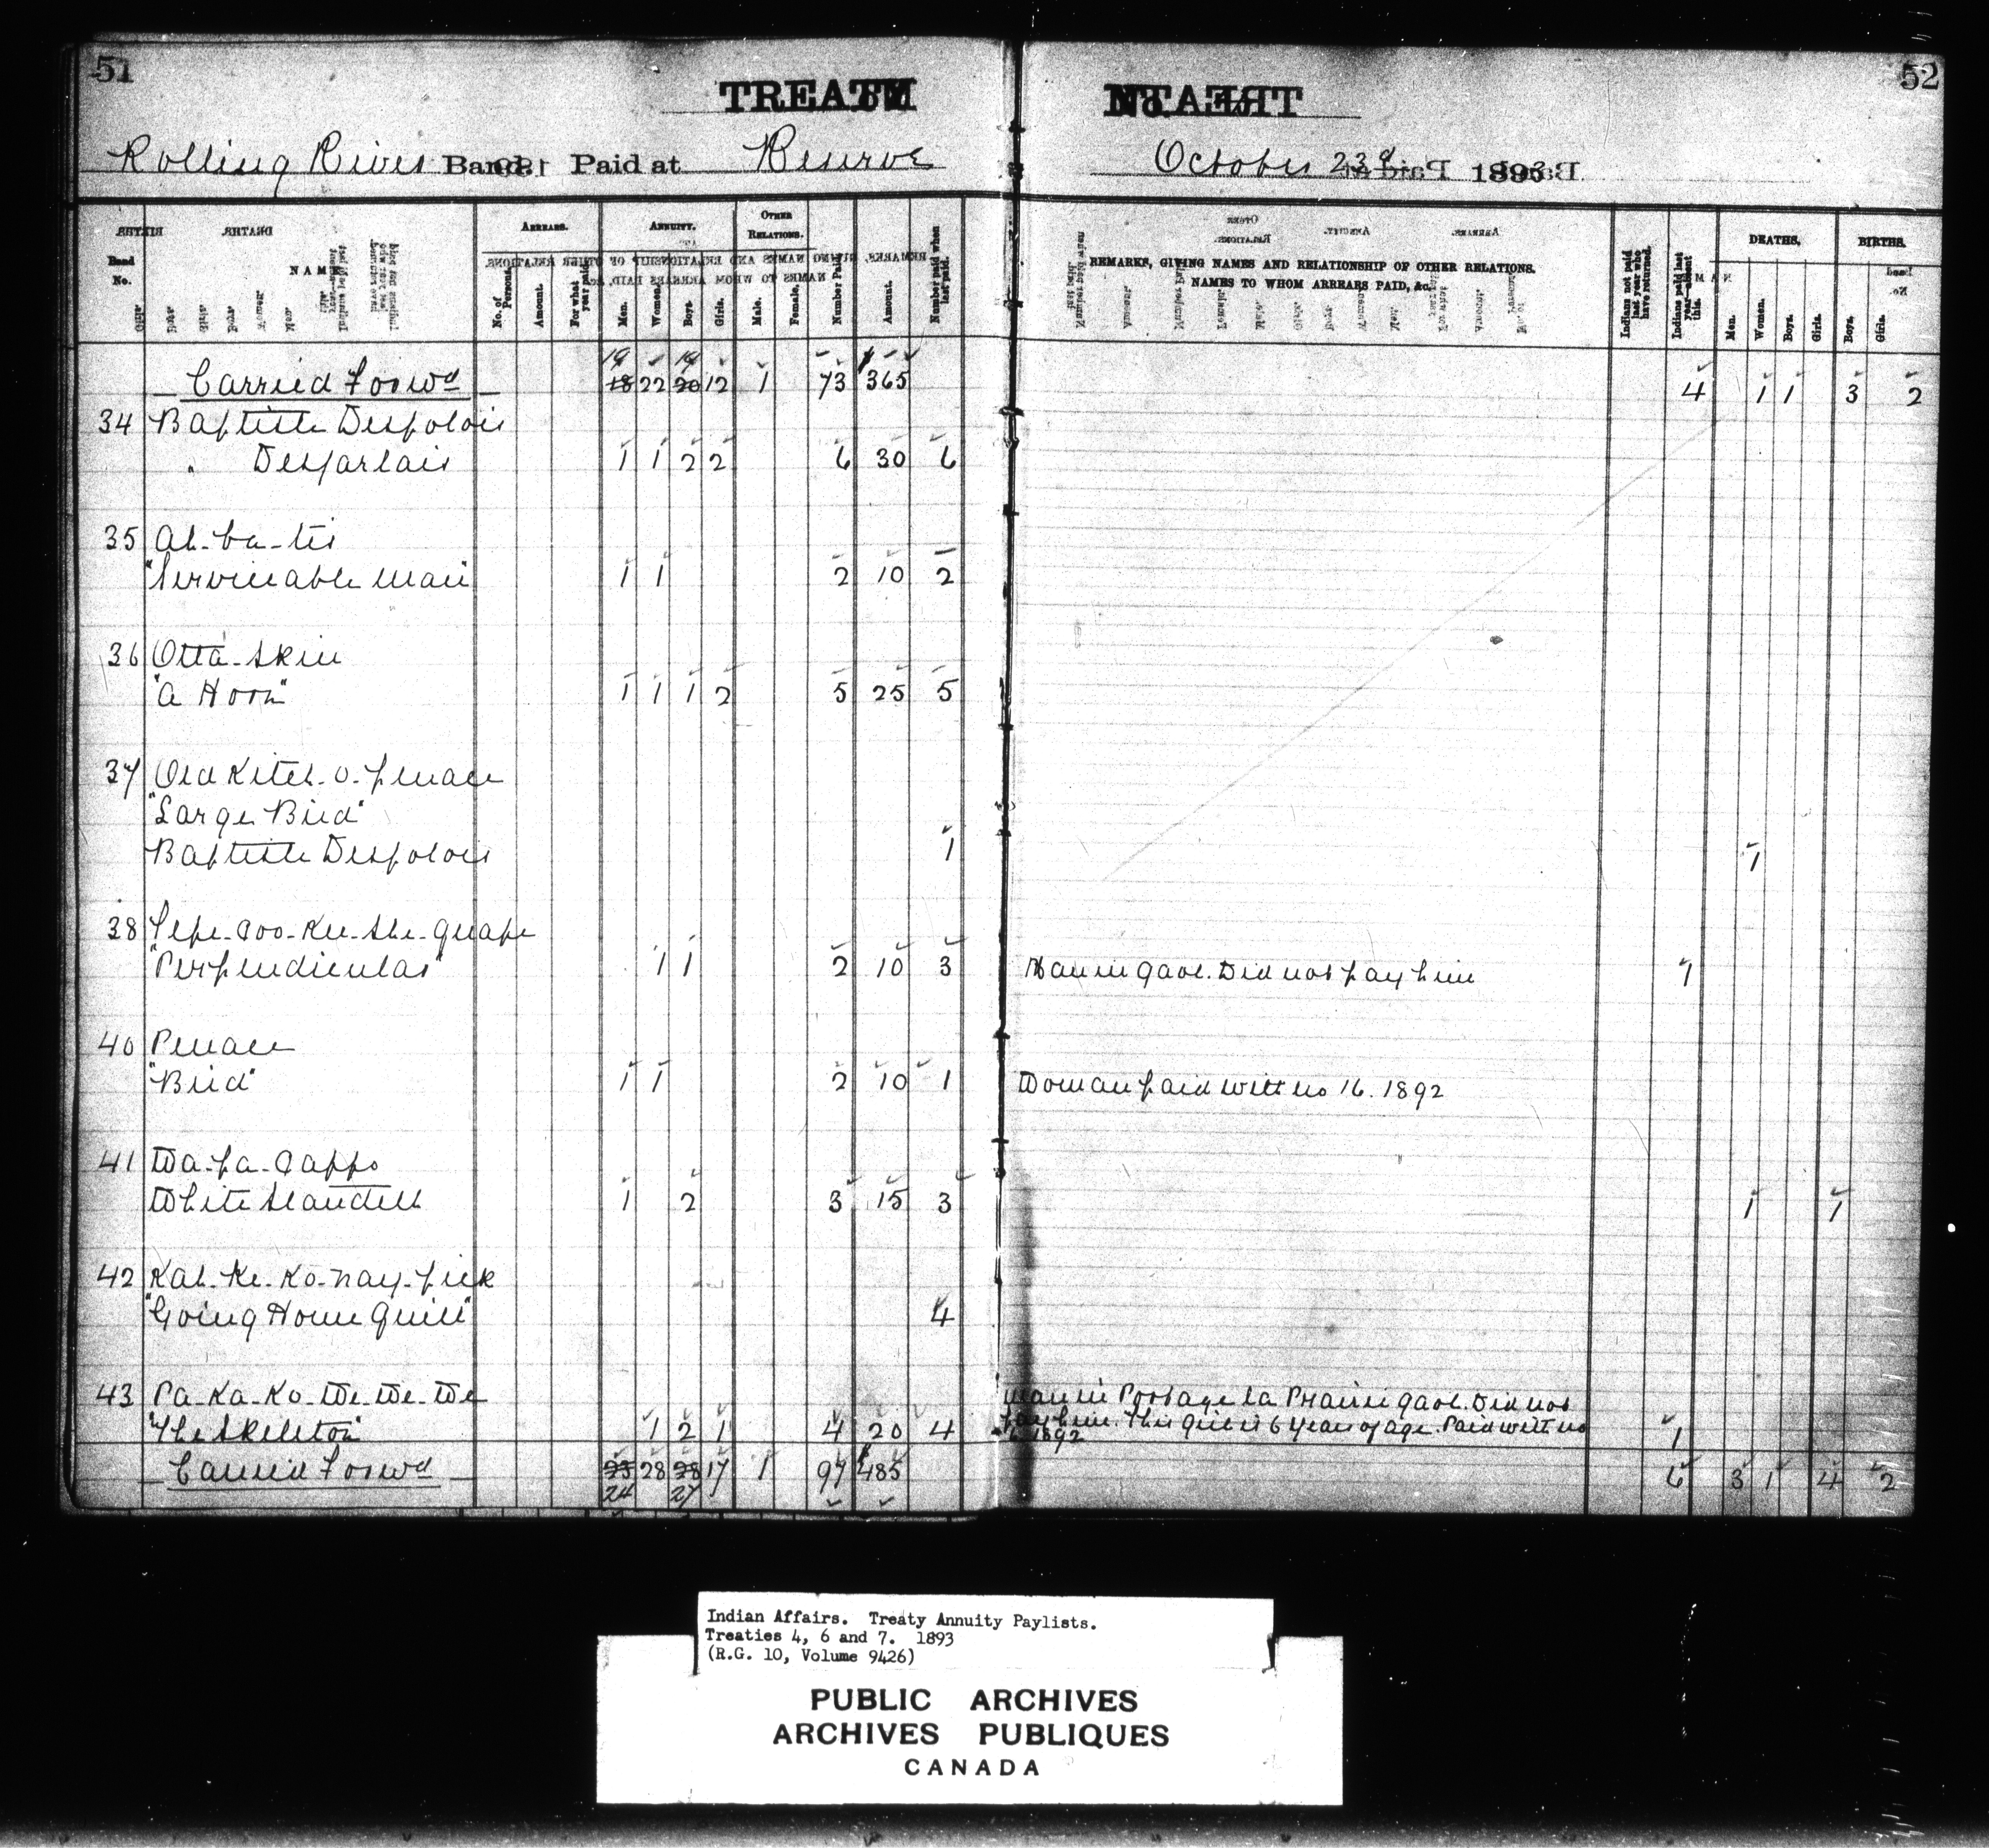 51
52
TREATY
TREATY No.
Rolling River Band. Paid at Reserve
October 23d 1893
Band No.
NAME.
ARREARS.
No. of Persons.
Amount.
For what year paid.
ANNUITY.
Men.
Women.
Boys.
Girls.
OTHER RELATIONS.
Male.
Female.
Number Paid.
Amount.
Number paid when last paid.
REMARKS, GIVING NAMES AND RELATIONSHIP OF OTHER RELATIONS.
NAMES TO WHOM ARREARS PAID, &c.
Indians not paid last year who have returned.
Indians paid last year absent this.
DEATHS,
Men.
Women.
Boys.
Girls.
BIRTHS.
Boys.
Girls.
19 19
Carried Forwd 18 22 20 12 1 73 $365 4 1 1 3 2
34 Baptiste Despolois
" Desjarlais 1 1 2 2 6 30 6
35 Ah-ba-tis
"Serviceable Man" 1 1 2 10 2
36 Otta-skin
"A Horn" 1 1 1 2 5 25 5
37 Old Kitch-o-penace
"Large Bird"
Baptiste Despolois 1 1
38 Tepe-coo-kee-she-quape
"Perpendicular" 1 1 2 10 3 Man in gaol. Did not pay him 1
40 Penace
"Bird" 1 1 2 10 1 Woman paid with no 16. 1892
41 Wa-pa-cappo
White Standell 1 2 3 15 3 1 1
42 Kah-ke-ko-nay-pick
"Going Home Quill" 4
43 Pa-ka-ko-we-we-we Man in Portage la Prairie gaol. Did not
"The Skeleton" 1 2 1 4 20 4 pay him. This girl is 6 years of age. Paid with no
6 1892 1
Carried Forwd 25 28 28 17 1 97 $485 6 3 1 4 2
24 27
Indian Affairs. Treaty Annuity Paylists.
Treaties 4, 6 and 7. 1893
(R.G. 10, Volume 9426)
PUBLIC ARCHIVES
ARCHIVES PUBLIQUES
CANADA